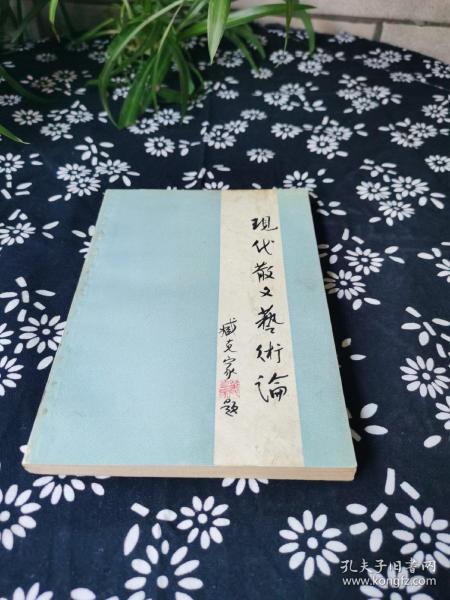 现代散文藝術論
臧克家
题
孔夫子旧书网
www.kongfz.com